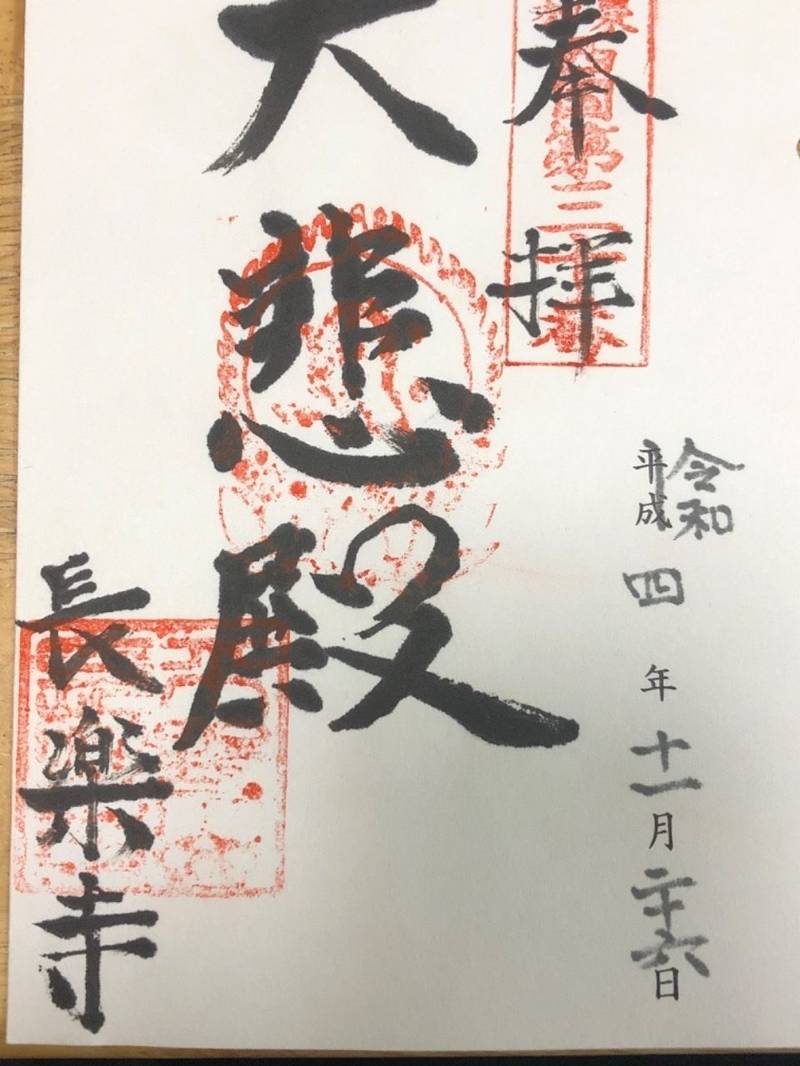 奉拝
令和
平成 四 年 十一 月 二十六 日
大悲殿
長楽寺